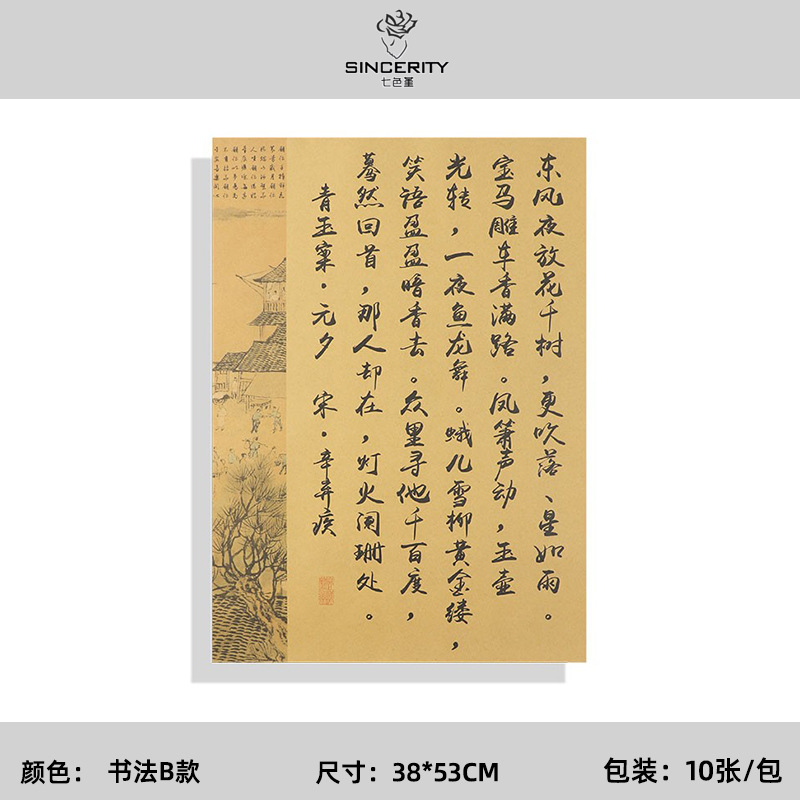 SINCERITY
七色堇
东风夜放花千树，更吹落、星如雨。
宝马雕车香满路。凤箫声动，玉壶
光转，一夜鱼龙舞。蛾儿雪柳黄金缕，
笑语盈盈暗香去。众里寻他千百度，
蓦然回首，那人却在，灯火阑珊处。
青玉案·元夕 宋·辛弃疾
颜色： 书法B款
尺寸：38*53CM
包装：10张/包